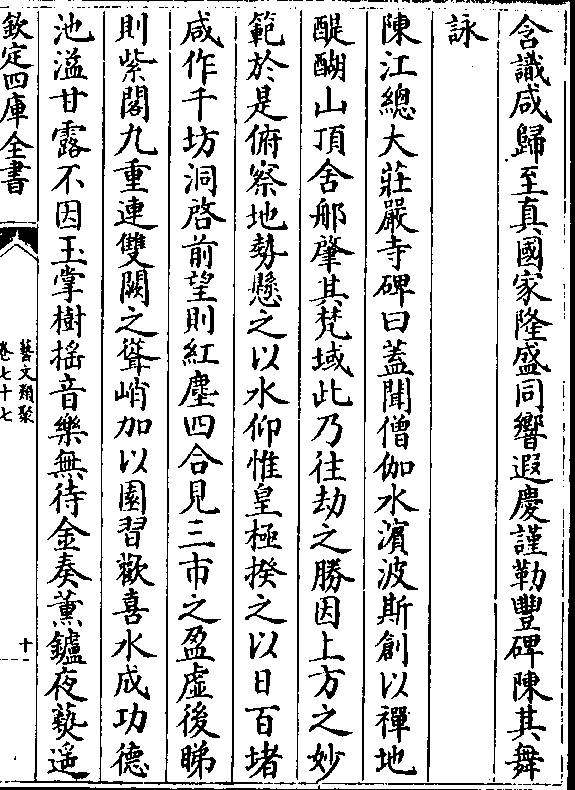 含識咸歸至真國家隆盛同響遐慶謹勒豐碑陳其舞
詠
陳江總大莊嚴寺碑曰蓋聞僧伽水濵波斯創以禪地
醍醐山頂舍郍肇其梵域此乃往劫之勝因上方之妙
範於是俯察地勢懸之以水仰惟皇極揆之以日百堵
咸作千坊洞啓前望則紅塵四合見三市之盈虚後睇
則紫閣九重連雙闕之聳峭加以園習歡喜水成功德
池溢甘露不因玉掌樹揺音樂無待金奏薫鑪夜爇遥
欽定四庫全書
藝文類聚
卷七十七
十